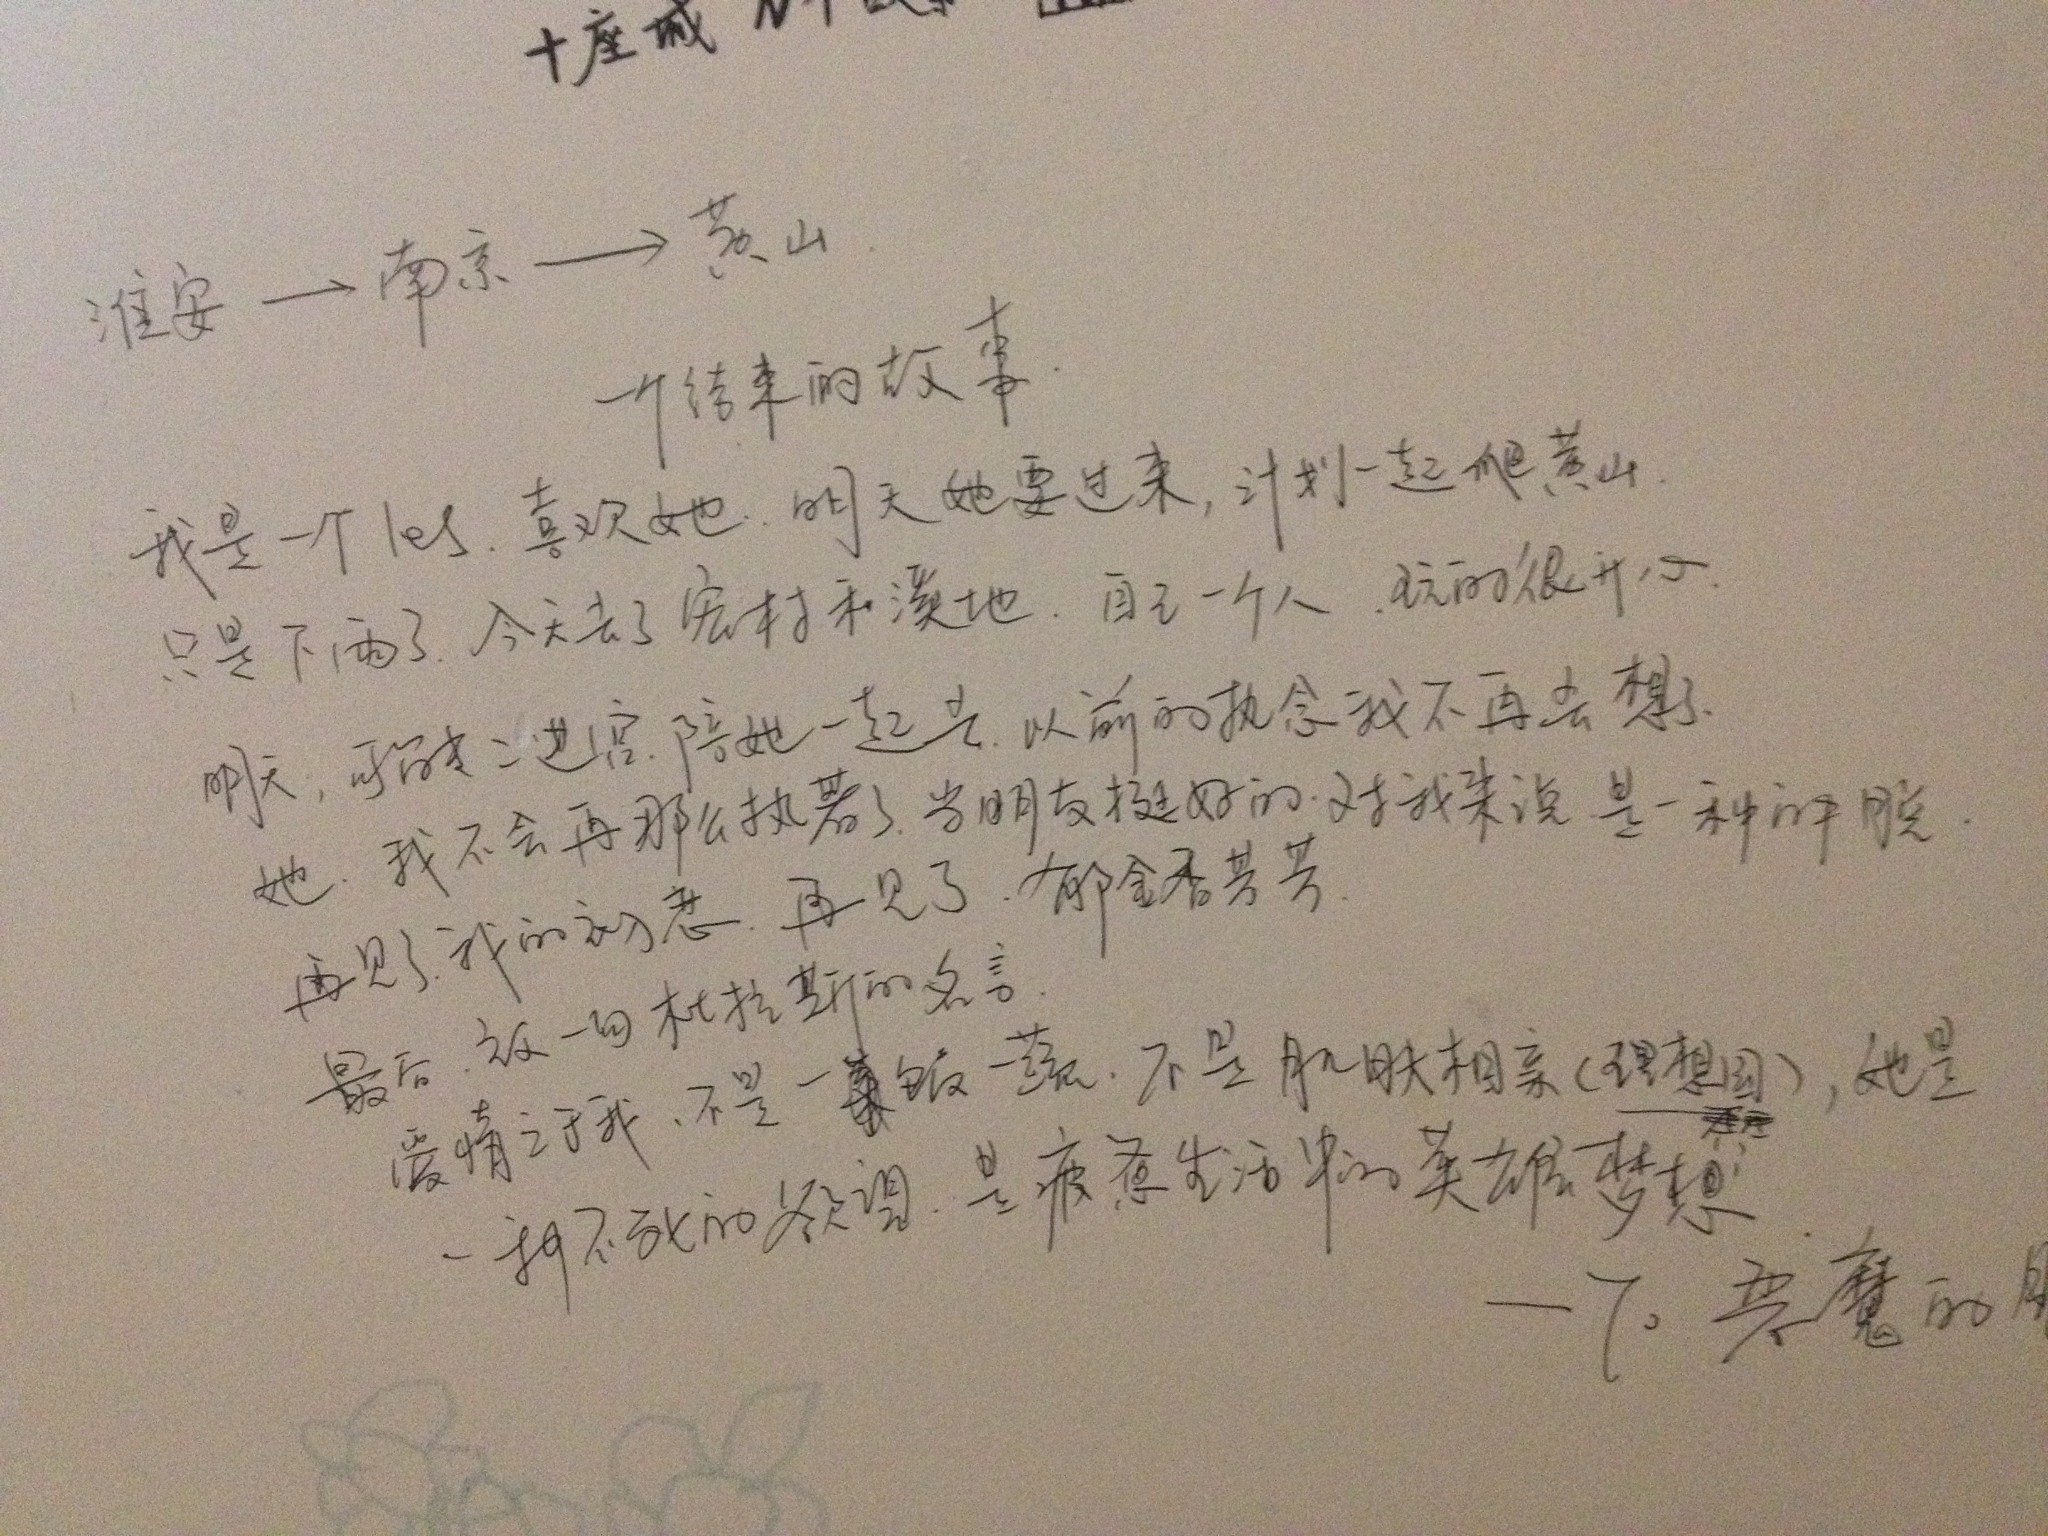 十座城 N个故事
淮安 → 南京 → 黄山.
一个结束的故事.
我是一个les. 喜欢她. 明天她要过来, 计划一起爬黄山.
只是下雨了. 今天去了宏村和溪地. 自己一个人. 玩的很开心.
明天, 可能去二进宫. 陪她一起去. 以前的执念我不再去想了.
她. 我不会再那么执着了. 当朋友挺好的. 对我来说是一种解脱.
再见了. 我的初恋. 再见了. 郁金香芳芳.
最后. 放一句杜拉斯的名言.
爱情之于我、不是一饭一蔬. 不是肌肤相亲(理想国), 她是
一种不死的欲望. 是疲惫生活中的英雄梦想.
—下。恶魔的